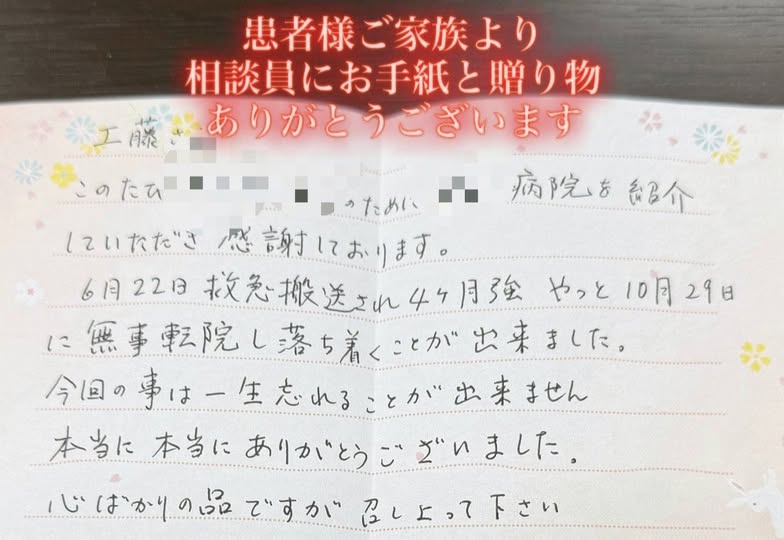 患者様ご家族より
相談員にお手紙と贈り物
ありがとうございます
工藤さ
このたび のために 病院を紹介
していただき 感謝しております。
6月22日 救急搬送され 4ヶ月強 やっと 10月29日
に 無事転院し 落ち着くことが 出来ました。
今回の事は 一生 忘れることが 出来ません
本当に 本当に ありがとうございました。
心ばかりの品ですが 召し上って下さい